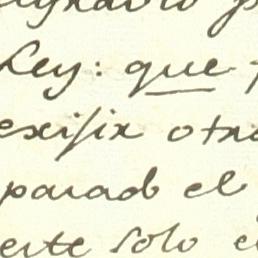 Ley: que
exijix otra
parado el
este solo e